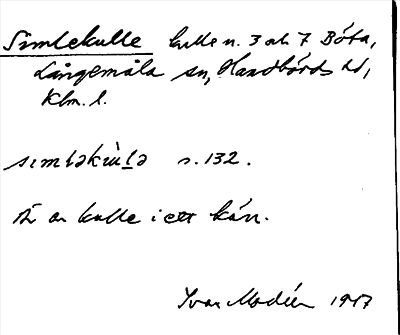 Simlekulle kulle n. 3 och 7 Böta,
Långemåla sn, Handbörds hd,
Klm. l.
sımləkùlə s. 132.
Är en kulle i ett kärr.
Yvar Modéer 1917